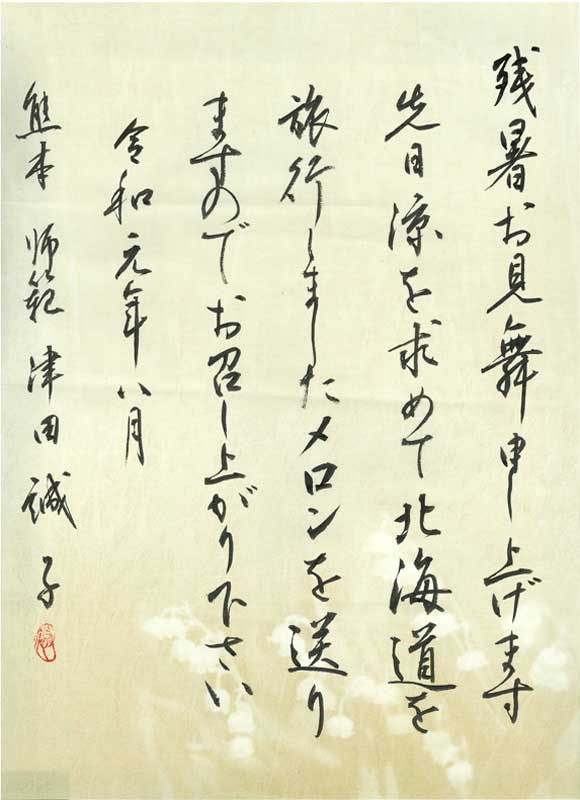 残暑お見舞申し上げます
先日涼を求めて北海道を
旅行しましたメロンを送り
ますのでお召し上がり下さい
令和元年八月
熊本 師範 津田誠子